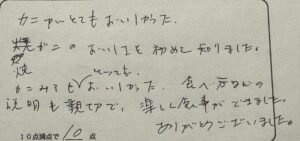 カニがとてもおいしかった。
焼ガニのおいしさを初めて知りました。
焼 とっても
カニみそもおいしかった。食べ方などの
説明も親切で、楽しく食事ができました。
ありがとうございました。
10点満点で 10 点